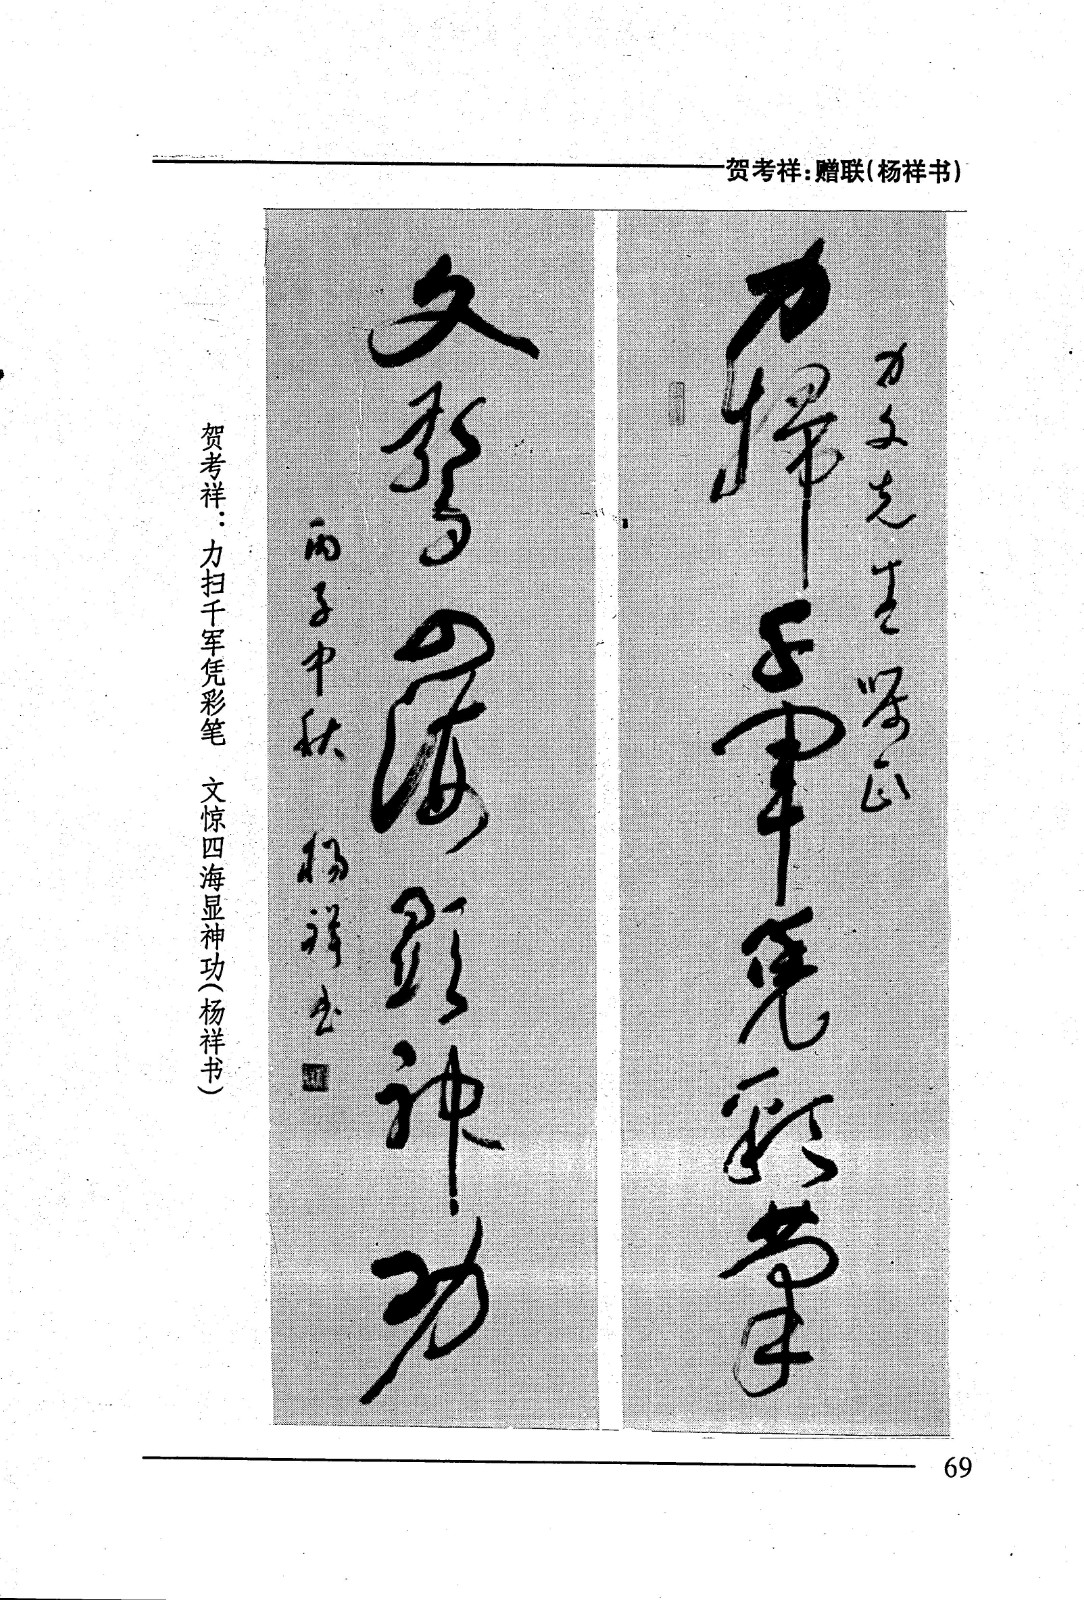 贺考祥：赠联（杨祥书）
力文先生嘱正
力掃千军凭彩笔
文驚四海顯神功
丙子中秋 杨祥书
贺考祥：力扫千军凭彩笔 文惊四海显神功（杨祥书）
69